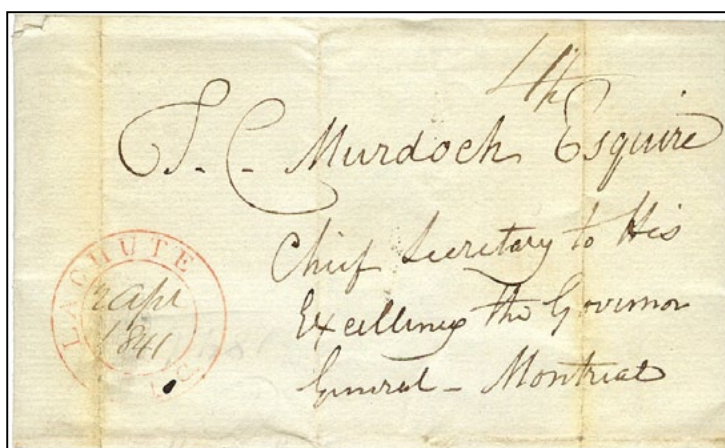 4th
T. C. Murdoch Esquire
Chief Secretary to His
Excellency the Governor
General - Montreal
LACHUTE
Apl
1841